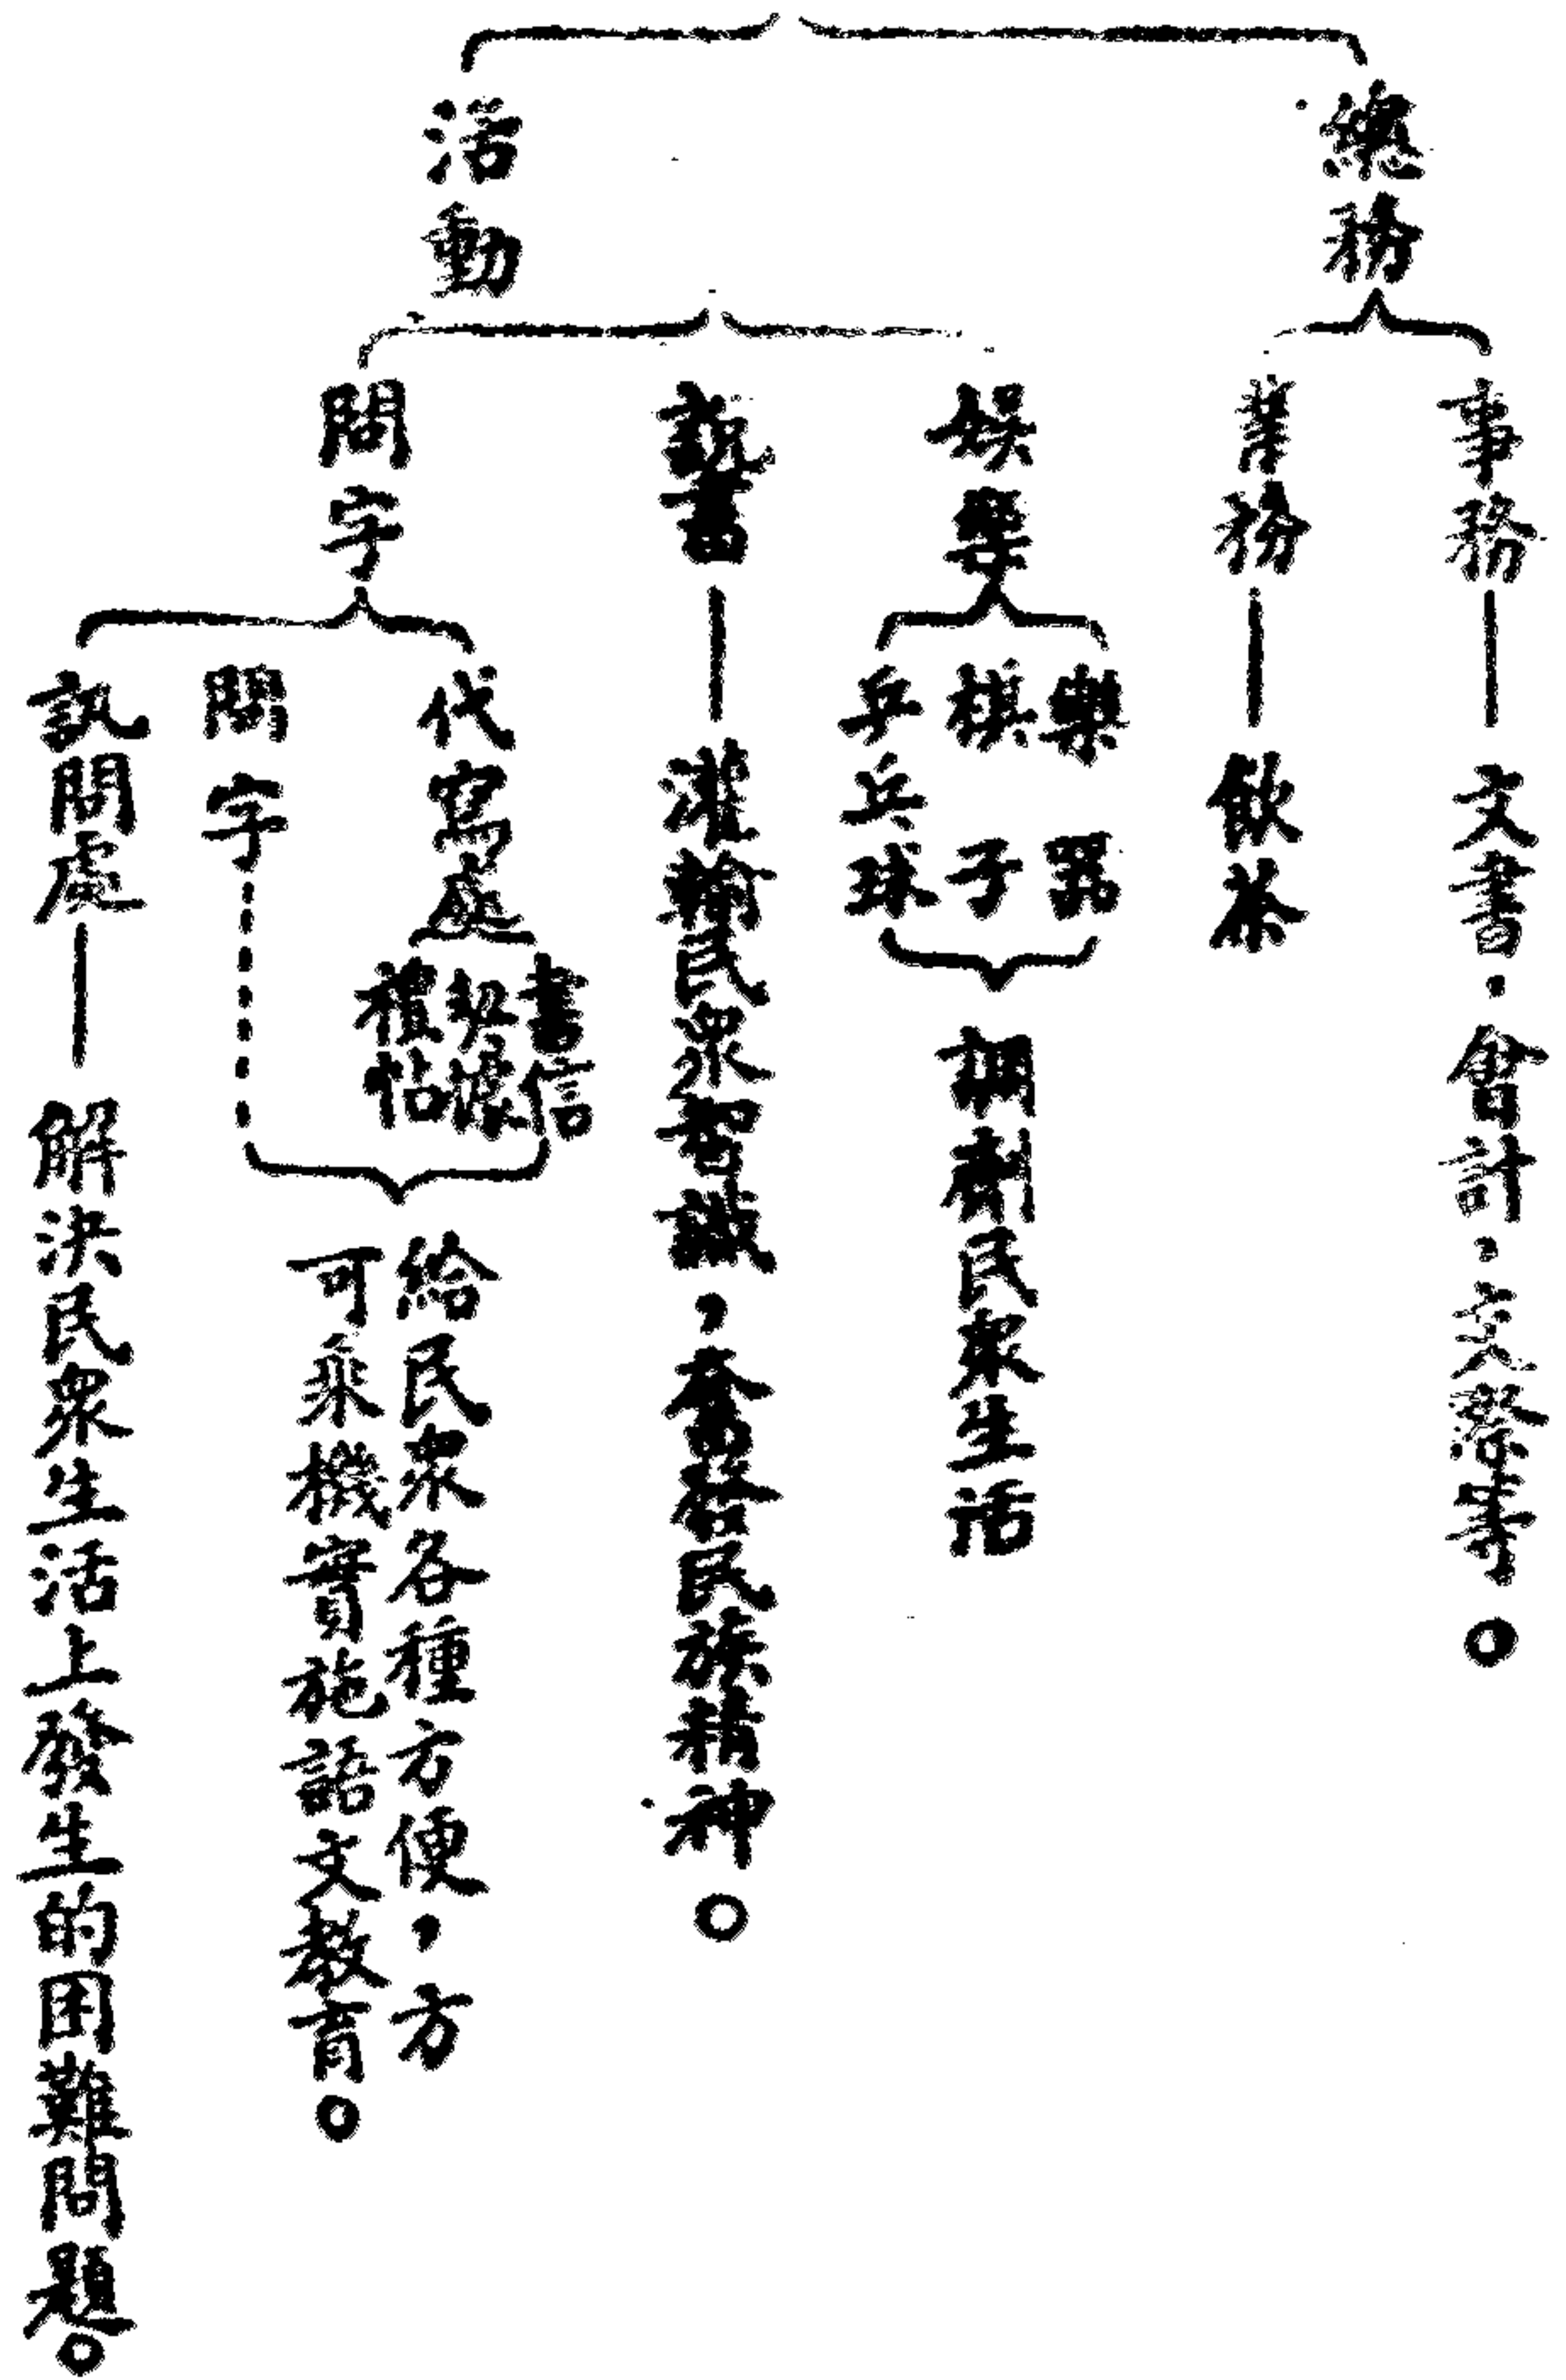 總務
事務
文書．會計．交際等。
業務
飲茶
活動
娛樂
樂器
棋子
乒乓球
調劑民眾生活
說書
灌輸民眾智識，奮發民族精神。
問字
代寫處
書信
契據
禮帖
問字
給民眾各種方便，方
可乘機實施語文教育。
訊問處
解決民眾生活上發生的困難問題。